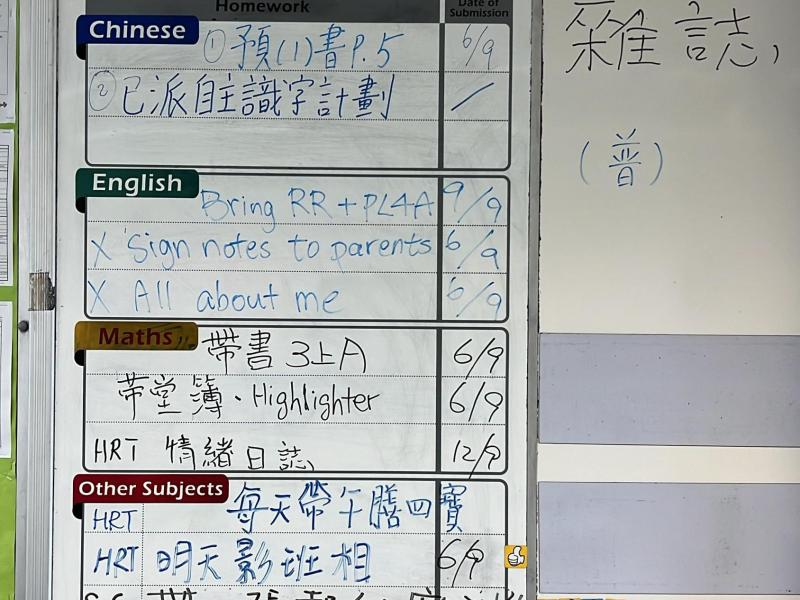 Homework Date of Submission
Chinese ① 預(1)書P.5 6/9
② 已派自主識字計劃 /
English Bring RR + PL4A 9/9
X Sign notes to parents 6/9
X All about me 6/9
Maths 帶書 3上A 6/9
帶堂簿、Highlighter 6/9
HRT 情緒日誌 12/9
Other Subjects
HRT 每天帶午膳四寶
HRT 明天影班相 6/9
雜誌,
(普)